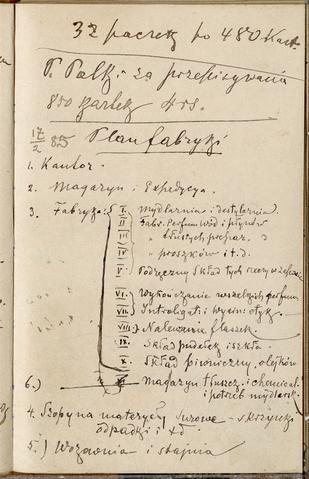 32 paczek po 480 Kart.
P. Palki za przepisywanie
850 kartek 4 rs.
17/2 85 Plan fabryki
1. Kantor.
2. Magazyn i Expedycya.
3. Fabryka: I. Mydlarnia i destylarnia.
II Fabr. Perfum wód i płynów
III " tłustych prepar. "
IV " proszków i t. d.
V. Podręczny skład tych rzeczy w
VI. Wykończanie wszelkich perfum
VII. Introligat. i wycin. etyk.
VIII. Nalewanie flaszek.
IX. Skład pudełek i szkła.
X. Skład piwniczny, olejków
6.) XI Magazyn tłuszcz. i chemical.
i potrzeb mydlarsk.
4. Szopy na materyały surowe - skrzynki
odpadki i t d
5.) Wozownia i stajnia